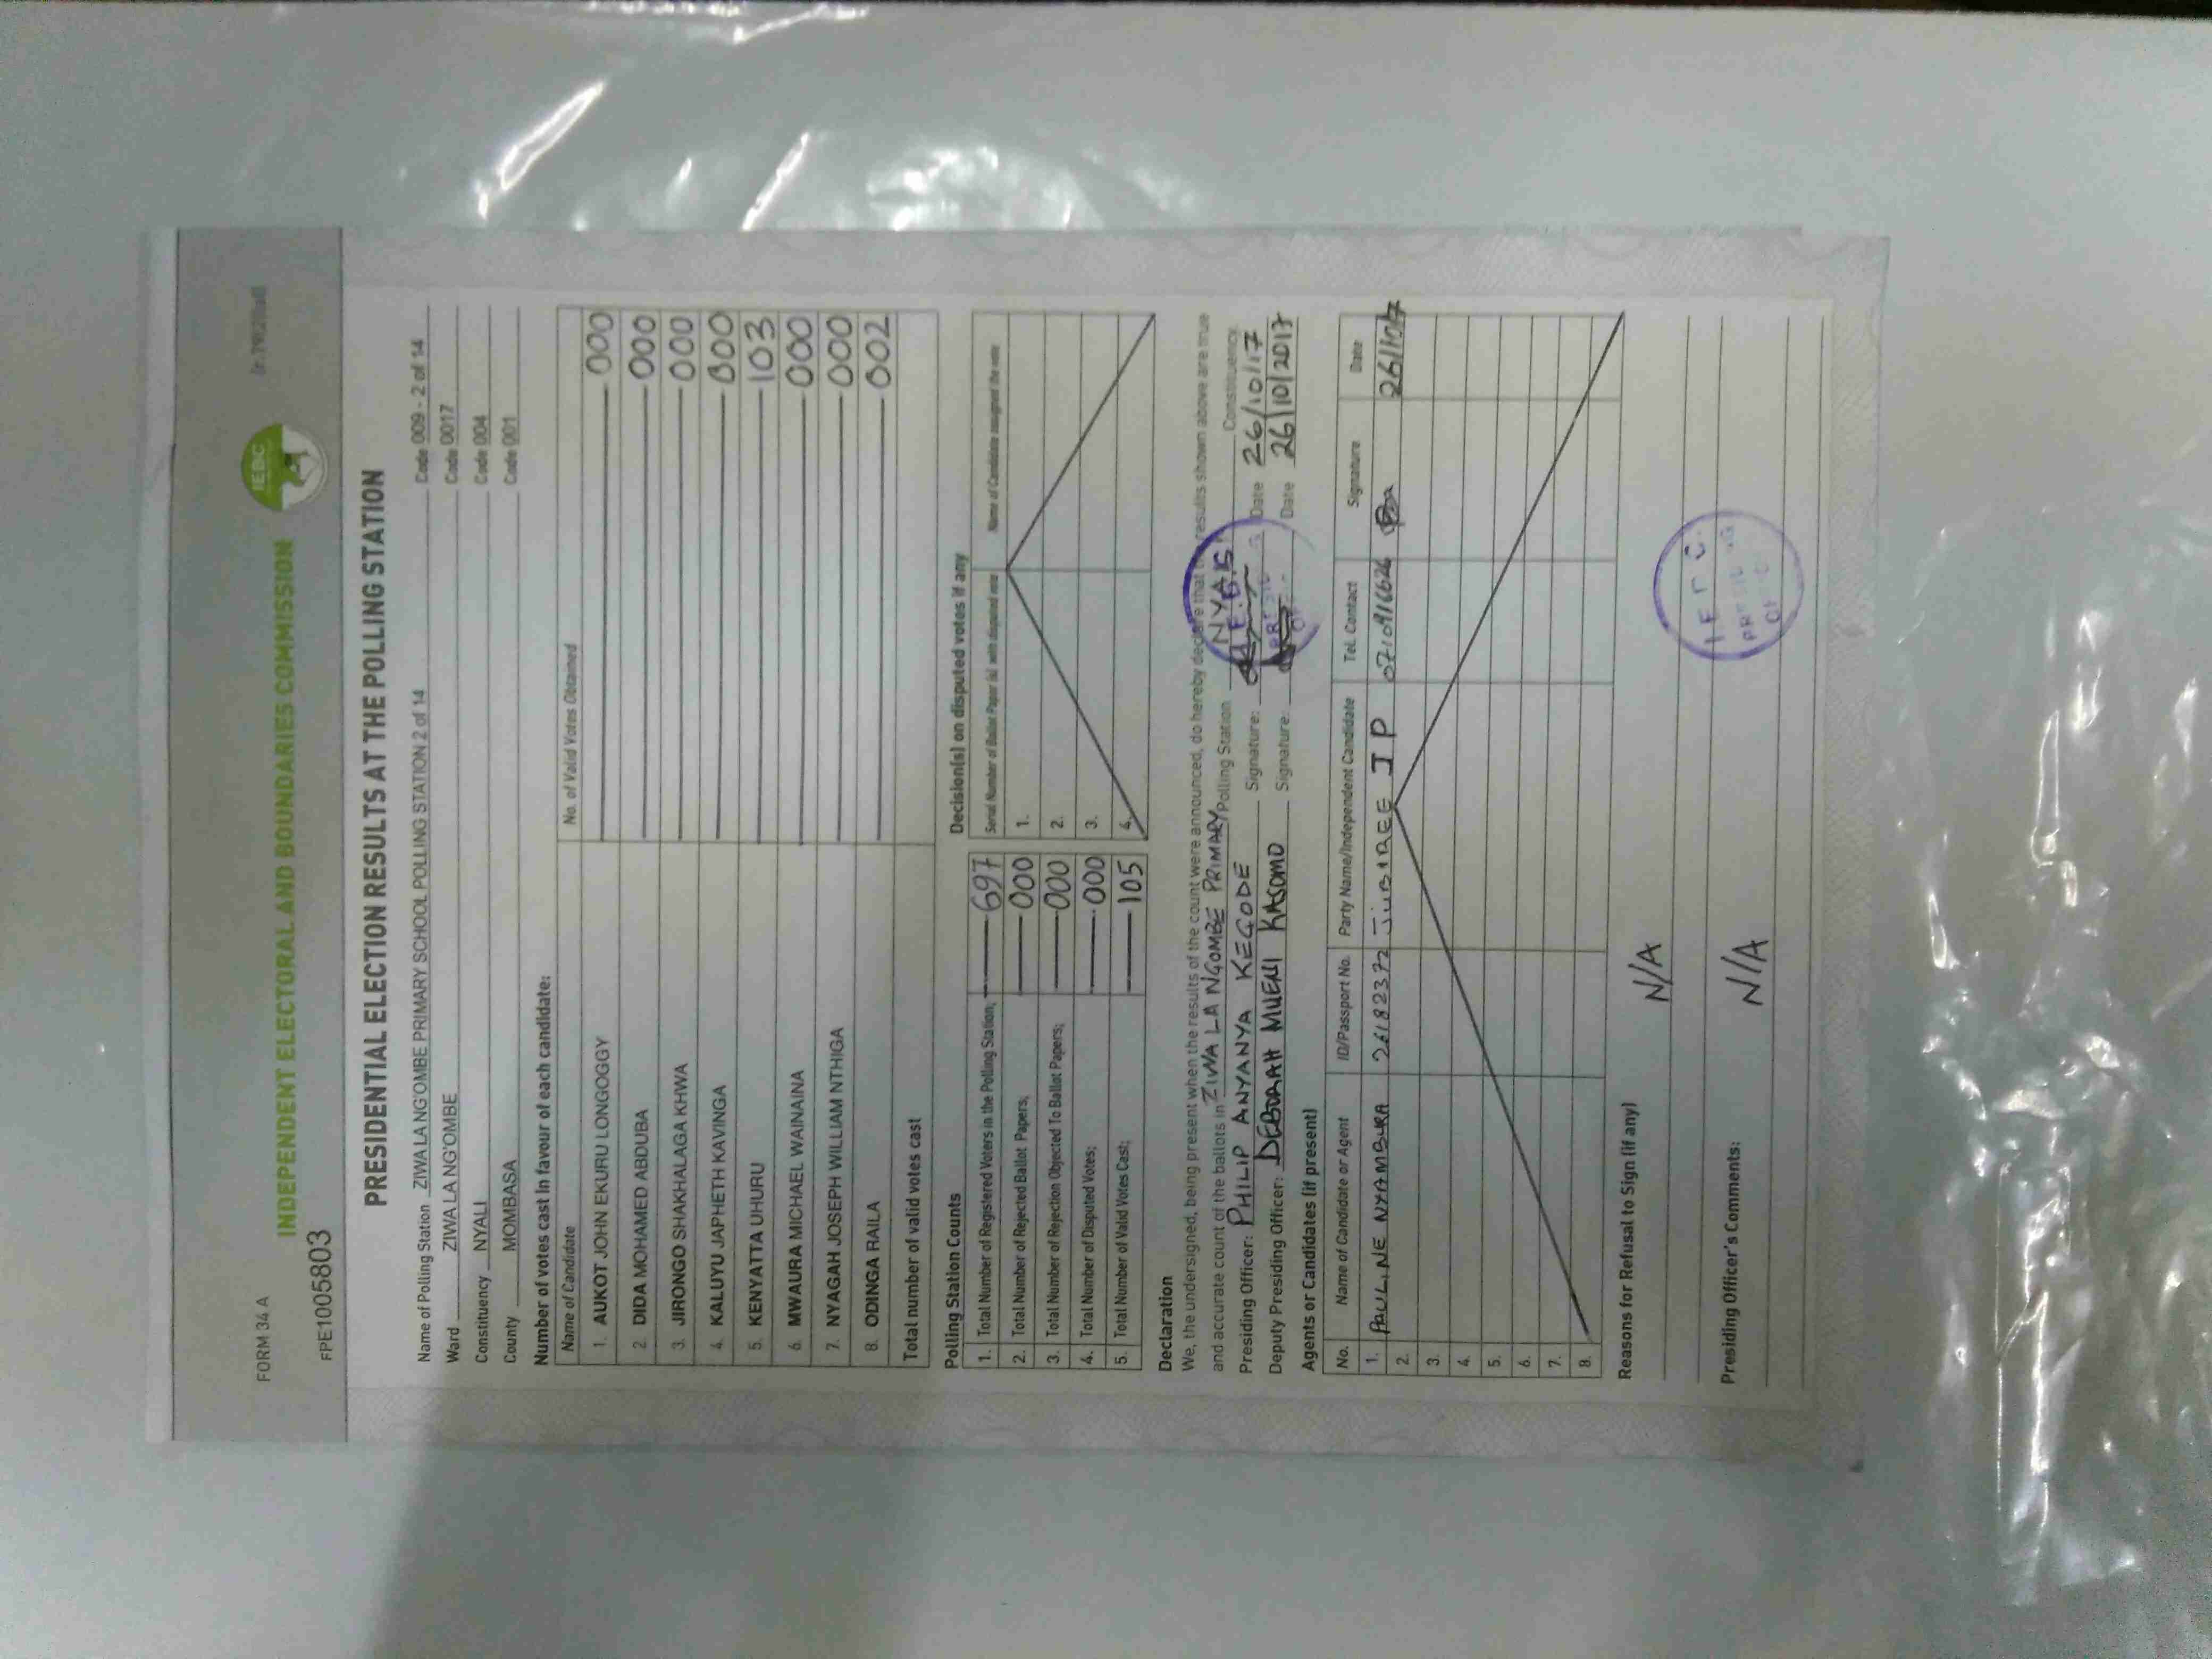 FORM 34 A
INDEPENDENT ELECTORAL AND BOUNDARIES COMMISSION
IEBC
FPE1005803
PRESIDENTIAL ELECTION RESULTS AT THE POLLING STATION
Name of Polling Station ZIWA LA NG'OMBE PRIMARY SCHOOL POLLING STATION 2 of 14 Code 009 - 2 of 14
Ward ZIWA LA NG'OMBE Code 0017
Constituency NYALI Code 004
County MOMBASA Code 001
Number of votes cast in favour of each candidate:
Name of Candidate No. of Valid Votes Obtained
1. AUKOT JOHN EKURU LONGOGGY 000
2. DIDA MOHAMED ABDUBA 000
3. JIRONGO SHAKHALAGA KHWA 000
4. KALUYU JAPHETH KAVINGA 000
5. KENYATTA UHURU 103
6. MWAURA MICHAEL WAINAINA 000
7. NYAGAH JOSEPH WILLIAM NTHIGA 000
8. ODINGA RAILA 002
Total number of valid votes cast
Polling Station Counts
1. Total Number of Registered Voters in the Polling Station; 697
2. Total Number of Rejected Ballot Papers; 000
3. Total Number of Rejection Objected To Ballot Papers; 000
4. Total Number of Disputed Votes; 000
5. Total Number of Valid Votes Cast; 105
Decision(s) on disputed votes if any
Serial Number of Ballot Paper (s) with disputed vote Name of Candidate assigned the vote
1.
2.
3.
4.
Declaration
We, the undersigned, being present when the results of the count were announced, do hereby declare that the results shown above are true
and accurate count of the ballots in ZIWA LA NGOMBE PRIMARY Polling Station NYALI Constituency
Presiding Officer: PHILIP ANYANYA KEGODE Signature: Date 26/10/17
Deputy Presiding Officer: DEBORAH MUENI KASOMO Signature: Date 26/10/2017
Agents or Candidates (if present)
No. Name of Candidate or Agent ID/Passport No. Party Name/Independent Candidate Tel. Contact Signature Date
1. PAULINE NYAMBURA 26182372 JUBIREE JP 0710916626
2.
3.
4.
5.
6.
7.
8.
Reasons for Refusal to Sign (if any)
N/A
Presiding Officer's Comments:
N/A